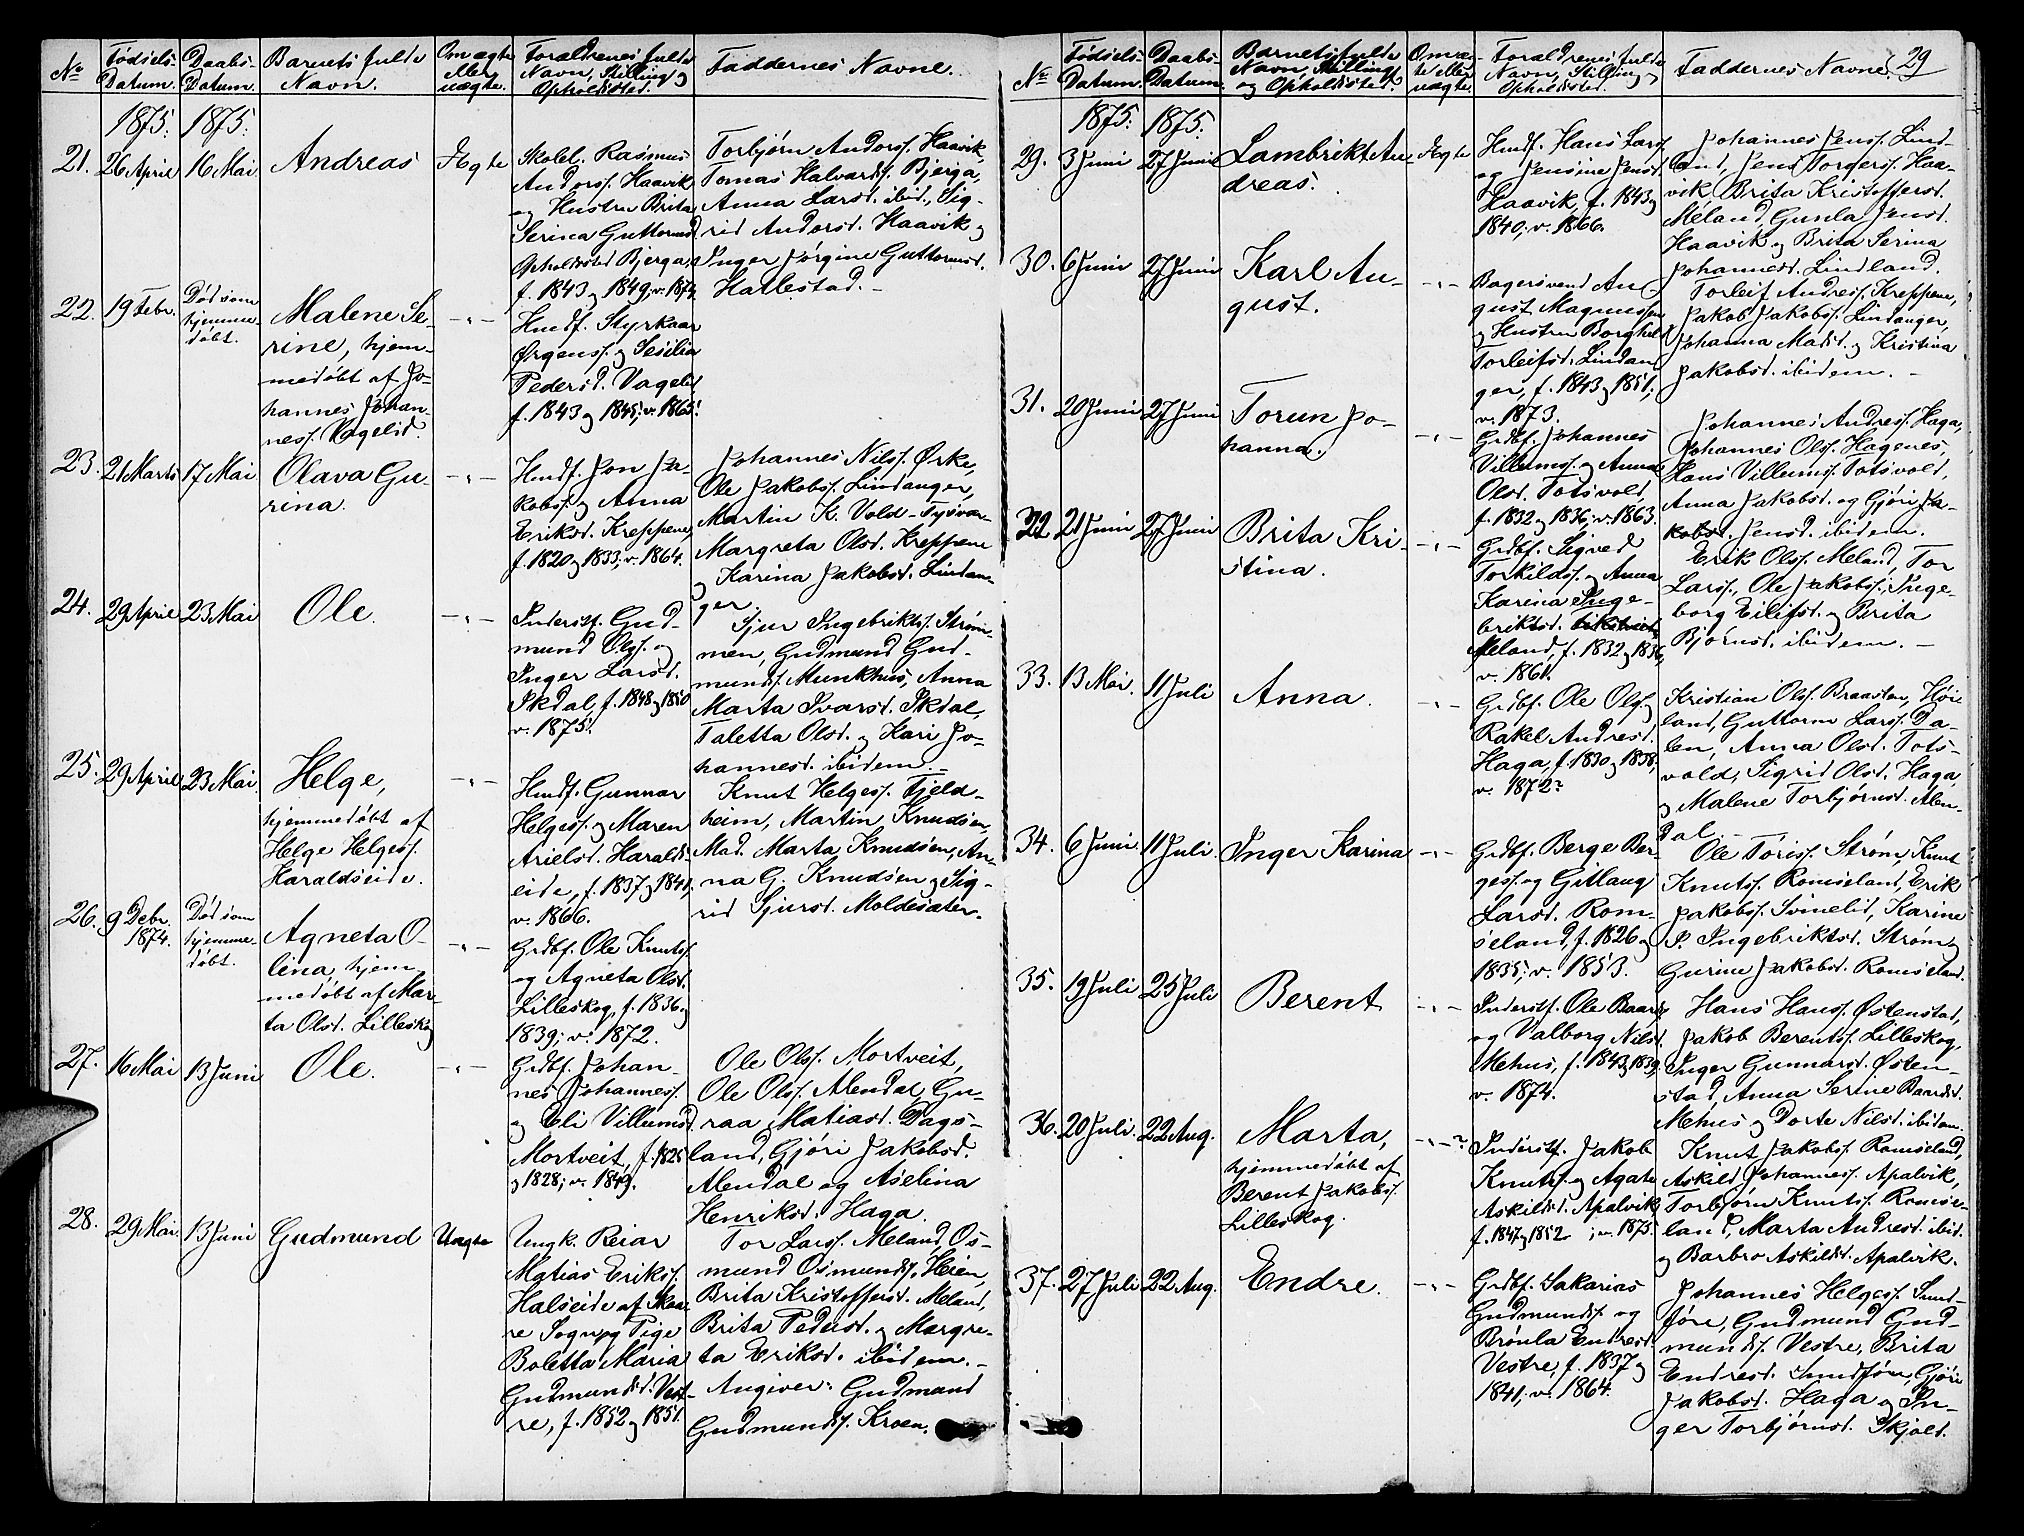 No
Fødsels-
Datum.
Daabs-
Datum.
Barnets fulde
Navn.
Om ægte
eller
uægte.
Forældrenes fulde
Navn, Stilling og
Opholdssted.
Faddernes Navne.
1875. 1875.
21. 26 April 16 Mai Andreas Ægte
Skolel. Rasmus
Andorss. Haavik
og Hustru Brita
Serina Guttormsd.
Opholdssted Bjerga,
f. 1843 og 1849; v. 1874.
Torbjørn Andorss. Haavik,
Tomas Halvards. Bjerga,
Anna Larsd. ibid., Sig-
rid Andorsd. Haavik og
Inger Jørgine Guttormsd.
Hallestad. -
22. 19 Febr. Død som
hjemme-
døbt.
Malene Se-
rine, hjem-
medøbt af Jo-
hannes Johan-
ness. Vagelid.
- " -
Husmf. Styrkaar
Ørgenss. og Sesilia
Pedersd. Vagelid
f. 1843 og 1845; v. 1865.
23. 21 Marts 17 Mai Olava Gu-
rina.
- " -
Husmf. Jon Ja-
kobss. og Anna
Eriksd. Kreppene,
f. 1820 og 1833; v. 1864.
Johannes Nilss. Ørke,
Ole Jakobss. Lindanger,
Martin K. Vold - Tysvær
Margreta Olsd. Kreppene
og Karina Jakobsd. Lindan-
ger
24. 29 April 23 Mai Ole.
- " -
Inderstf. Gud-
mund Olss. og
Inger Larsd.
Ikdal, f. 1848 og 1850
v. 1875.
Sjur Ingebriktss. Strøm-
men, Gudmund Gud-
munds. Munkhus, Anna
Marta Ivarsd. Ikdal,
Taletta Olsd. og Kari Jo-
hannesd. ibidem. -
25. 29 April 23 Mai Helge,
hjemmedøbt af
Helge Helgess.
Haraldseide.
- " -
Husmf. Gunnar
Helgess. og Maren
Arielsd. Haralds-
eide, f. 1837 og 1841,
v. 1866.
Knut Helgess. Fjeld-
heim, Martin Knudsen,
Mad. Marta Knudsen, An-
na G. Knudsen og Sig-
rid Sjursd. Moldesæter.
26. 9 Debr.
1874.
Død som
hjemme-
døbt.
Agneta O-
lina, hjem-
medøbt af Mar-
ta Olsd. Lilleskog
- " -
Grdbf. Ole Knuts.
og Agneta Olsd.
Lilleskog, f. 1836 og
1839; v. 1872.
27. 16 Mai 13 Juni Ole.
- " -
Grdbf. Johan-
nes Johanness.
og Eli Villumsd.
Mortveit, f. 1825
og 1828; v. 1849.
Ole Olss. Mortveit,
Ole Olss. Alendal, Gu-
raa Matiasd. Dags-
land, Gjøri Jakobsd.
Alendal og Aselina
Henriksd. Haga.
28. 29 Mai 13 Juni Gudmund Uægte
Ungk. Reiar
Matias Erikss.
Halseide af Skaa-
re Sogn og Pige
Boletta Maria
Gudmundsd. Vest-
re, f. 1852 og 1851.
Tor Larss. Meland, Os-
mund Osmunds. Heien,
Brita Kristoffersd. Meland,
Brita Pedersd. og Margre-
ta Eriksd. ibidem. -
Angiver: Gudmund
Gudmunds. Kroen.
29
No
Fødsels-
Datum.
Daabs-
Datum.
Barnets fulde
Navn, Stilling
og Opholdssted.
Om æg-
te eller
uægte.
Forældrenes fulde
Navn, Stilling og
Opholdssted.
Faddernes Navne.
1875. 1875.
29. 3 Juni 27 Juni Lambrikte An-
dreas.
Ægte
Husmf. Hans Larss.
og Jensine Jensd.
Haavik, f. 1843 og
1840; v. 1866.
Johannes Jenss. Lind-
land, Jens Torgerss. Haa-
vik, Brita Kristoffersd.
Meland, Gunla Jensd.
Haavik og Brita Serina
Johannesd. Lindland.
30. 6 Juni 27 Juni Karl Au-
gust.
- " -
Bagersvend Au-
gust Magnussen
og Hustru Borghild
Torleifsd. Lindan-
ger, f. 1843 og 1851,
v. 1873.
Torleif Andress. Kreppene,
Jakob Jakobss. Lindanger,
Johanna Madsd. og Kristina
Jakobsd. ibidem. -
31. 20 Juni 27 Juni Torun Jo-
hanna.
- " -
Grdbf. Johannes
Villumss. og Anna
Olsd. Totsvold,
f. 1832 og 1836; v. 1863.
Johannes Andress. Haga,
Johannes Olss. Hagenes,
Hans Villumss. Totsvold,
Anna Jakobsd. og Gjøri Ja-
kobsd. Jensd. ibidem.
32 21 Juni 27 Juni Brita Kri-
stina.
- " -
Grdbf. Sigved
Torkilds. og Anna
Karina Inge-
briktsd.
Meland, f. 1832 og 1836,
v. 1861.
Erik Olss. Meland, Tor
Larss., Ole Jakobss., Inge-
borg Eilifsd. og Berita
Bjørnsd. ibidem. -
33. 13 Mai. 11 Juli Anna.
- " -
Grdbf. Ole Olss. og
Rakel Andresd.
Haga, f. 1830 og 1838,
v. 1872?
Kristian Olss. Braasten, Høi-
land, Guttorm Larss. Da-
len, Anna Olsd. Tots-
vold, Sigrid Olsd. Haga,
og Malene Torbjørnsd. Alen-
dal -
34. 6 Juni 11 Juli. Inger Karina
- " -
Grdbf. Berge Ber-
gess. og Gitlaug
Larsd. Rom-
seland, f. 1826 og
1835; v. 1853.
Ole Toriss. Strøm, Knut
Knutss. Romseland, Erik
Jakobss. Svinelid, Karine
S. Ingebriktsd. Strøm og
Gurine Jakobsd. Romseland.
35. 19 Juli 25 Juli Berent
- " -
Inderstf. Ole Baards.
og Valborg Nilsd.
Mehus, f. 1843 og 1839,
v. 1874.
Hans Hanss. Østenstad,
Jakob Berentss. Lilleskog,
Inger Gunnarsd. Østen-
stad, Anna Serine Baardsd.
Mehus og Dorte Nilsd. ibidem.
36. 20 Juli. 22 Aug. Marta,
hjemmedøbt af
Berent Jakobss.
Lilleskog.
- " - ?
Inderstf. Jakob
Knutss. og Agate
Askildsd. Apalvik,
f. 1847 og 1852; v. 1875.
Knut Jakobss. Romseland,
Askild Johanness. Apalvik,
Torbjørn Knutss. Romse-
land, Marta Andresd. ibid.
og Barbro Askildsd. Apalvik.
37. 27 Juli 22 Aug. Endre.
- " -
Grdbf. Sakarias
Gudmunds. og
Brønla Endresd.
Vestre, f. 1837 og
1841; v. 1864.
Johannes Helgess. Sund-
føre, Gudmund Gud-
munds. Vestre, Brita
Endresd. Sundføre, Gjøri
Jakobsd. Haga og In-
ger Torbjørnsd. Skjold.